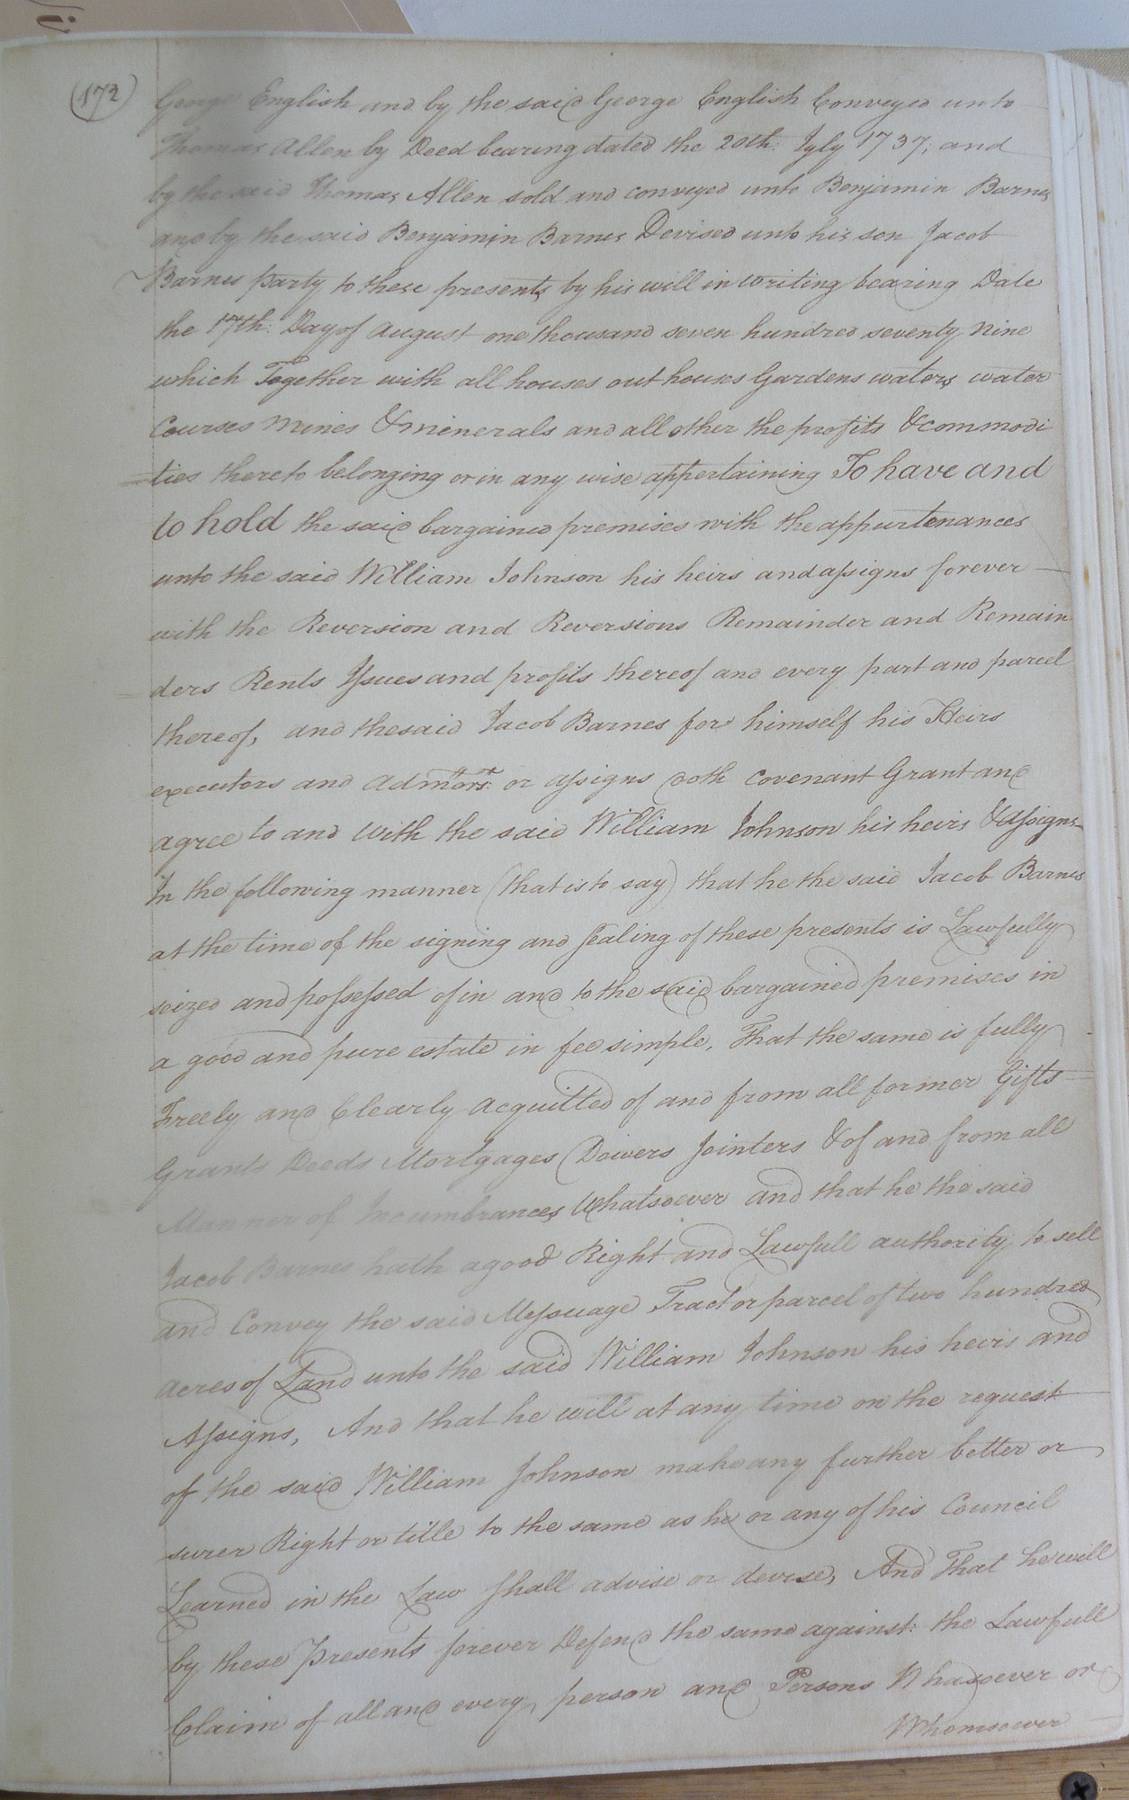 (172)
George English and by the said George English Conveyed unto
Thomas Allen by Deed bearing dated the 20th: Jyly 1737; and
by the said Thomas Allen sold and conveyed unto Benjamin Barnes
and by the said Benjamin Barnes Devised unto his son Jacob
Barnes party to these presents by his will in writing bearing Date
the 17th: Day of August one thousand seven hundred seventy nine
which Together with all houses outhouses Gardens waters water
Courses Mines & minerals and all other the profits & commodi
=ties thereto belonging or in any wise appertaining To have and
to hold the said bargained premises with the appurtenances
unto the said William Johnson his heirs and assigns forever
with the Reversion and Reversions Remainder and Remain
ders Rents Issues and profits thereof and every part and parcel
thereof, and the said Jacob Barnes for himself his Heirs
executors and admors. or assigns doth covenant Grant and
agree to and with the said William Johnson his heirs & assigns
In the following manner (that is to say) that he the said Jacob Barnes
at the time of the signing and sealing of these presents is Lawfully
seized and possessed of in and to the said bargained premises in
a good and pure estate in fee simple, That the same is fully
Freely and Clearly Acquitted of and from all former Gifts
Grants Deeds Mortgages Dowers Jointers & of and from all
Manner of Incumbrances Whatsoever and that he the said
Jacob Barnes hath a good Right and Lawfull authority to sell
and Convey the said Messuage Tract or parcel of two hundred
acres of Land unto the said William Johnson his heirs and
Assigns, And that he will at any time on the request
of the said William Johnson make any further better or
surer Right or title to the same as he or any of his Council
Learned in the Law shall advise or devise, And That he will
by these Presents forever Defend the same against the Lawfull
Claim of all and every person and Persons Whasoever or
Whomsoever